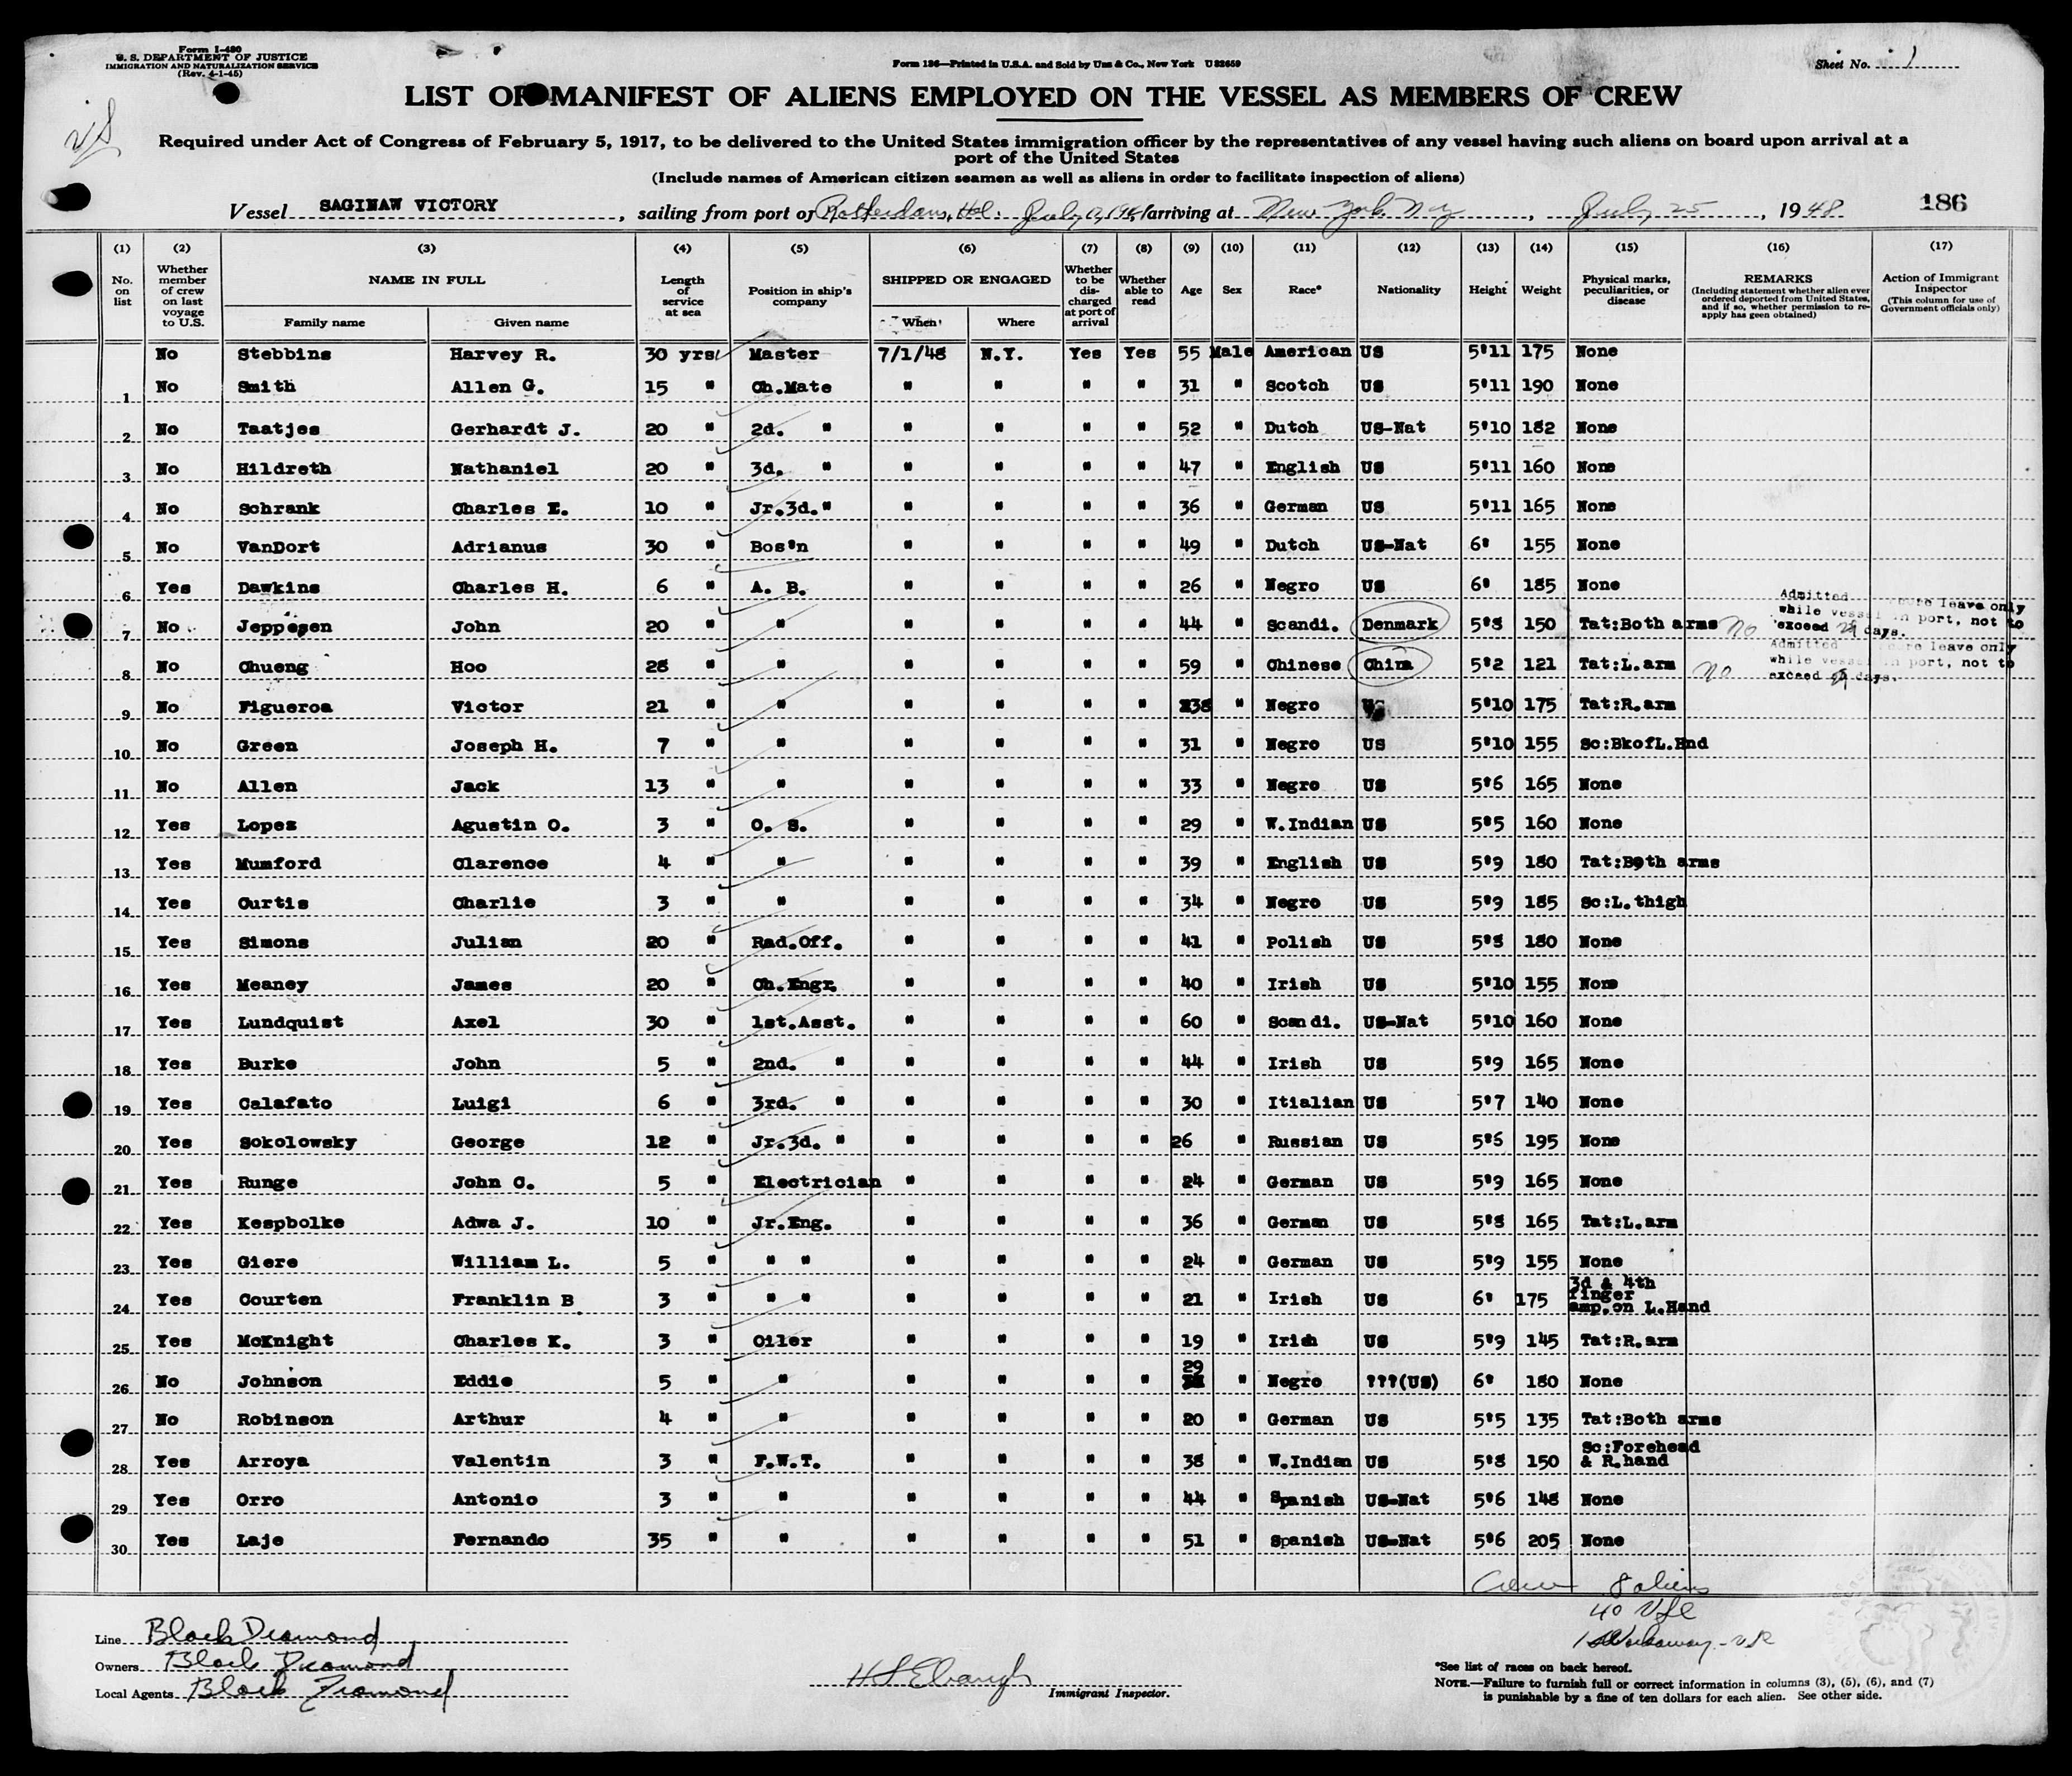 Form I-480
U. S. DEPARTMENT OF JUSTICE
IMMIGRATION AND NATURALIZATION SERVICE
(Rev. 4-1-45)
Form 136—Printed in U.S.A. and Sold by Unz & Co., New York U 32659
Sheet No. 1
LIST OR MANIFEST OF ALIENS EMPLOYED ON THE VESSEL AS MEMBERS OF CREW
Required under Act of Congress of February 5, 1917, to be delivered to the United States immigration officer by the representatives of any vessel having such aliens on board upon arrival at a
port of the United States
(Include names of American citizen seamen as well as aliens in order to facilitate inspection of aliens)
Vessel SAGINAW VICTORY, sailing from port of Rotterdam, Hol. July 12, 1948 arriving at New York N.Y., July 25, 1948 186
(1) (2) (3) (4) (5) (6) (7) (8) (9) (10) (11) (12) (13) (14) (15) (16) (17)
No. on list
Whether member of crew on last voyage to U.S.
NAME IN FULL
Family name
Given name
Length of service at sea
Position in ship's company
SHIPPED OR ENGAGED
When
Where
Whether to be discharged at port of arrival
Whether able to read
Age
Sex
Race*
Nationality
Height
Weight
Physical marks, peculiarities, or disease
REMARKS
(Including statement whether alien ever ordered deported from United States, and if so, whether permission to re-apply has geen obtained)
Action of Immigrant Inspector
(This column for use of Government officials only)
No Stebbins Harvey R. 30 yrs Master 7/1/48 N.Y. Yes Yes 55 Male American US 5'11 175 None
1 No Smith Allen G. 15 " Ch.Mate " " " " 31 " Scotch US 5'11 190 None
2 No Taatjes Gerhardt J. 20 " 2d. " " " " " 52 " Dutch US-Nat 5'10 182 None
3 No Hildreth Nathaniel 20 " 3d. " " " " " 47 " English US 5'11 160 None
4 No Schrank Charles E. 10 " Jr.3d." " " " " 36 " German US 5'11 165 None
5 No VanDort Adrianus 30 " Bos'n " " " " 49 " Dutch US-Nat 6' 155 None
6 Yes Dawkins Charles H. 6 " A. B. " " " " 26 " Negro US 6' 185 None
7 No Jeppesen John 20 " " " " " " 44 " Scandi. Denmark 5'8 150 Tat:Both arms no Admitted shore leave only while vessel in port, not to exceed 29 days.
8 No Chueng Hoo 28 " " " " " " 59 " Chinese China 5'2 121 Tat:L.arm no Admitted shore leave only while vessel in port, not to exceed 29 days.
9 No Figueroa Victor 21 " " " " " " 38 " Negro US 5'10 175 Tat:R.arm
10 No Green Joseph H. 7 " " " " " " 31 " Negro US 5'10 155 Sc:BkofL.Hnd
11 No Allen Jack 13 " " " " " " 33 " Negro US 5'6 165 None
12 Yes Lopez Agustin O. 3 " O. S. " " " " 29 " W.Indian US 5'5 160 None
13 Yes Mumford Clarence 4 " " " " " " 39 " English US 5'9 180 Tat:Both arms
14 Yes Curtis Charlie 3 " " " " " " 34 " Negro US 5'9 185 Sc:L.thigh
15 Yes Simons Julian 20 " Rad.Off. " " " " 41 " Polish US 5'8 180 None
16 Yes Meaney James 20 " Ch.Engr. " " " " 40 " Irish US 5'10 155 None
17 Yes Lundquist Axel 30 " 1st.Asst. " " " " 60 " Scandi. US-Nat 5'10 160 None
18 Yes Burke John 5 " 2nd. " " " " " 44 " Irish US 5'9 165 None
19 Yes Calafato Luigi 6 " 3rd. " " " " " 30 " Itialian US 5'7 140 None
20 Yes Sokolowsky George 12 " Jr.3d. " " " " " 26 " Russian US 5'6 195 None
21 Yes Runge John C. 5 " Electrician " " " " 24 " German US 5'9 165 None
22 Yes Kespbolke Adwa J. 10 " Jr.Eng. " " " " 36 " German US 5'8 165 Tat:L.arm
23 Yes Giere William L. 5 " " " " " " " 24 " German US 5'9 155 None
24 Yes Courten Franklin B 3 " " " " " " " 21 " Irish US 6' 175 3d & 4th finger amp.on L.Hand
25 Yes McKnight Charles K. 3 " Oiler " " " " 19 " Irish US 5'9 145 Tat:R.arm
26 No Johnson Eddie 5 " " " " " " 29 " Negro ???(US) 6' 180 None
27 No Robinson Arthur 4 " " " " " " 20 " German US 5'5 135 Tat:Both arms
28 Yes Arroya Valentin 3 " F.W.T. " " " " 38 " W.Indian US 5'8 150 Sc:Forehead & R.hand
29 Yes Orro Antonio 3 " " " " " " 44 " Spanish US-Nat 5'6 148 None
30 Yes Laje Fernando 35 " " " " " " 51 " Spanish US-Nat 5'6 205 None
Crew 8 aliens
40 USC
1 Workaway - USC
Line Black Diamond
Owners Black Diamond
Local Agents Black Diamond
Immigrant Inspector.
*See list of races on back hereof.
NOTE.—Failure to furnish full or correct information in columns (3), (5), (6), and (7)
is punishable by a fine of ten dollars for each alien. See other side.